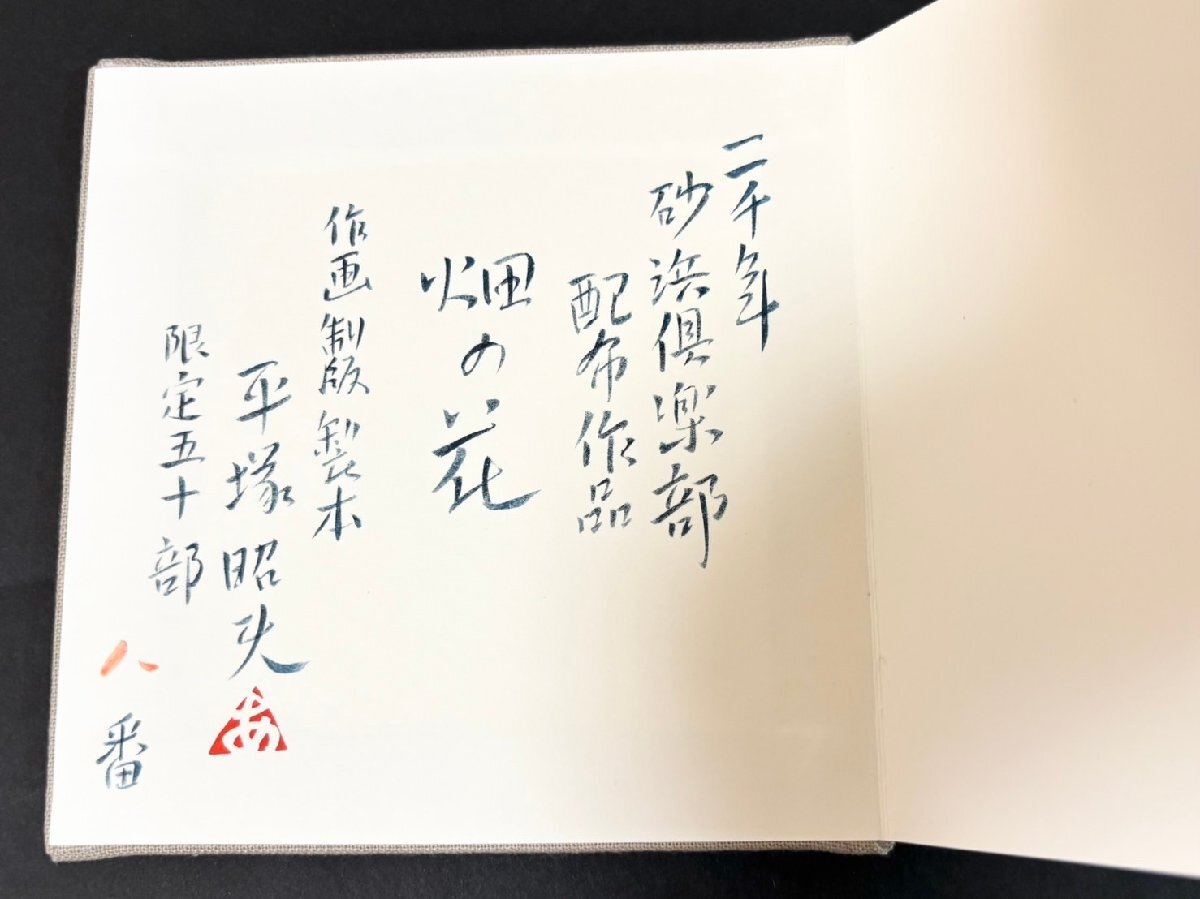 二千年
砂浜倶楽部
配布作品
畑の花
作画 制版 製本
平塚昭夫
限定五十部
八番